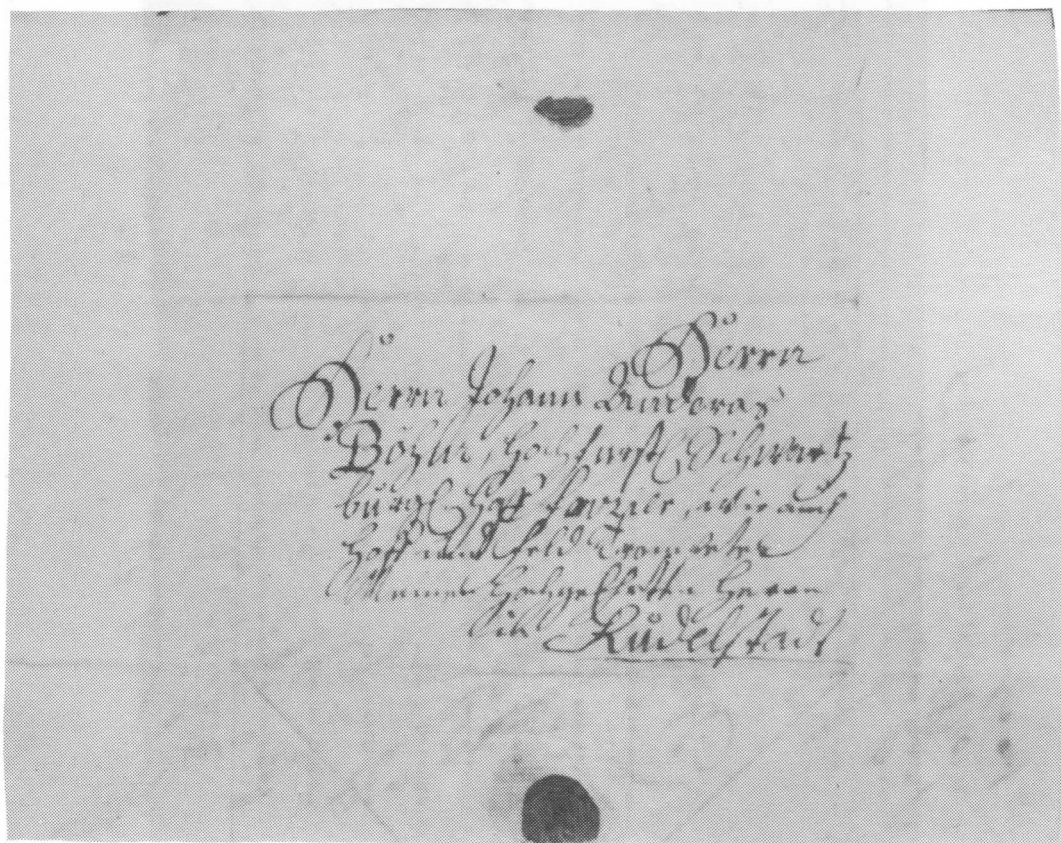 Herrn
Herrn Johann Andreas
Böhme, Hochfürstl Schwartz
bürgl Hoff fourier, wie auch
Hoff und Feld Trompeter
Meinem HochgeEhrten Herrn
in Rudelstadt